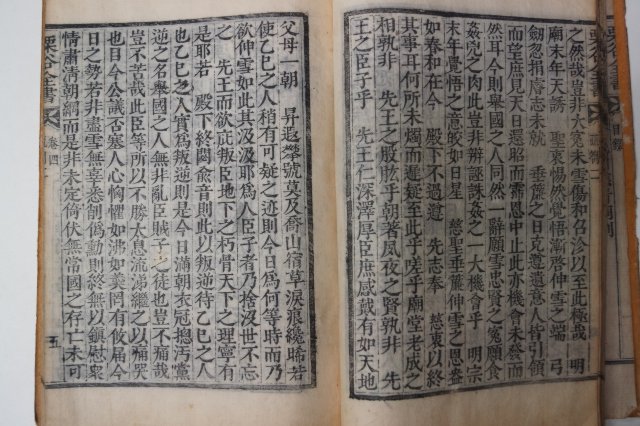 栗谷全書
之然哉豈非大寃未雪傷和召沴以至此極哉 明
廟末年天誘 聖衷惕然覺悟漸啓伸雪之端 弓
劒忽捐厝志未就 垂簾之日克遵遺意人皆引領
而望庶見天日還照而霈恩中止此亦機會未發而
然耳今則舉國之人同然一辭願雪忠賢之寃願食
姦兇之肉此豈非辨誣誅姦之一大機會乎 明宗
末年覺悟之意皎如日星 慈聖垂簾伸雪之恩盎
如春和在今 殿下不過遵 先志奉 慈衷以終
其事耳何所未燭而遲疑至此乎嗟乎廟堂老成之
相孰非 先王之股肱乎朝著夙夜之賢孰非 先
王之臣子乎 先王仁深澤厚臣庶感戴有如天地
父母一朝 昇遐攀號莫及喬山宿草淚痕纔晞若
使乙巳之人稍有可疑之迹則今日爲何等時而乃
欲伸雪如此其汲汲耶爲人臣子者乃捨沒世不忘
之 先王而欲庇叛臣地下之朽骨天下之理寧有
是耶若 殿下終閟兪音則此以叛逆待乙巳之人
也乙巳之人實爲叛逆則是今日滿朝衣冠摠汚黨
逆之名舉國之人無非亂臣賊子之徒也豈不痛哉
豈不苦哉此臣等所以不勝太息流涕繼之以痛哭
也目今公議否塞人心恟懼如沸如羹罔有攸届今
日之勢若非盡雪無辜悉削僞勳則終無以鎭慰衆
情肅淸朝綱而是非未定倚伏無常國之存亡未可
栗谷全書 卷四 五